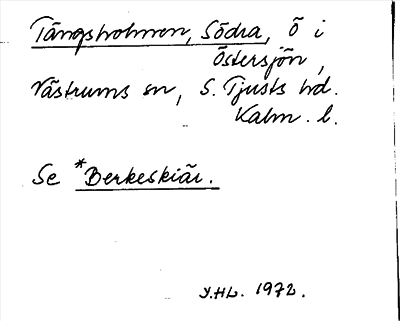 Tängsholmen, Södra, Ö i
Östersjön,
Västrums sn, S. Tjusts hd.
Kalm. l.
Se *Berkeskiär.
Y.HL. 1972.